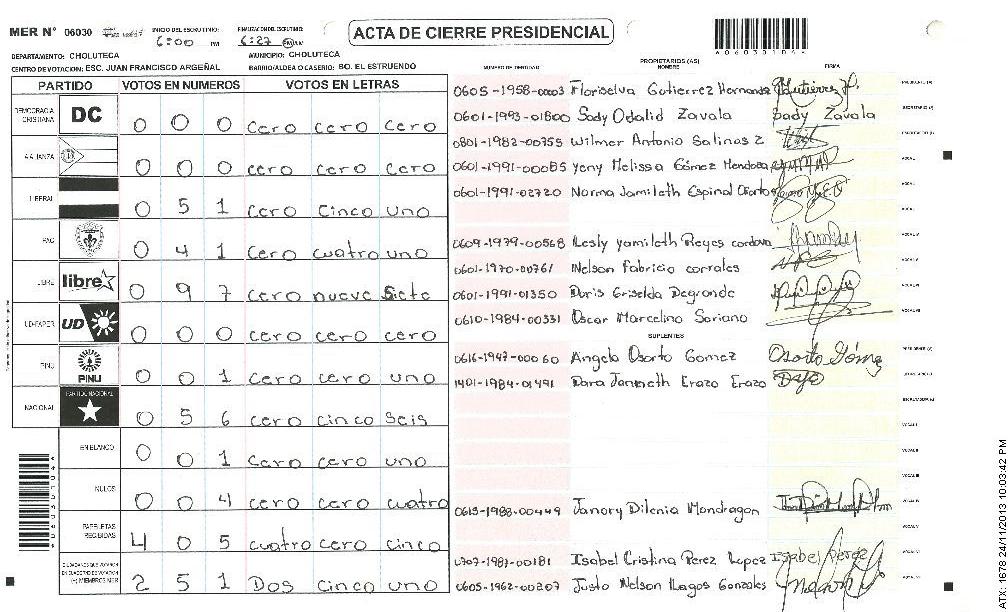 MER N° 06030 INICIO DEL ESCRUTINIO: 6:00 PM FINALIZACION DEL ESCRUTINIO: 6:27 PM ACTA DE CIERRE PRESIDENCIAL
DEPARTAMENTO: CHOLUTECA MUNICIPIO: CHOLUTECA
CENTRO DE VOTACION: ESC. JUAN FRANCISCO ARGEÑAL BARRIO/ALDEA O CASERIO: BO. EL ESTRUENDO
NUMERO DE IDENTIDAD PROPIETARIOS (AS) NOMBRE FIRMA
PARTIDO VOTOS EN NUMEROS VOTOS EN LETRAS
DEMOCRACIA CRISTIANA DC 0 0 0 cero cero cero
ALIANZA 0 0 0 cero cero cero
LIBERAL 0 5 1 cero cinco uno
PAC 0 4 1 cero cuatro uno
LIBRE libre 0 9 7 cero nueve siete
UD-FAPER UD 0 0 0 cero cero cero
PINU PINU 0 0 1 cero cero uno
NACIONAL PARTIDO NACIONAL 0 5 6 cero cinco seis
EN BLANCO 0 0 1 cero cero uno
NULOS 0 0 4 cero cero cuatro
PAPELETAS RECIBIDAS 4 0 5 cuatro cero cinco
CIUDADANOS QUE VOTARON 2 5 1 Dos cinco uno
(+) MIEMBROS MER
0605-1958-0003 Floriselva Gutierrez Hernande
0601-1993-01800 Sady Odalid Zavala Sady Zavala
0801-1982-00755 Wilmer Antonio Salinas Z
0601-1991-00085 Yeny Melissa Gómez Mendoza
0601-1991-02720 Norma Jamileth Espinal Osorto
0609-1979-00568 Lesly Yamileth Reyes cordova
0601-1970-00761 Nelson Fabricio corrales
0601-1991-01350 Doris Griselda Degrande
0610-1984-00331 Oscar Marcelino Soriano
SUPLENTES
0616-1947-00060 Angela Osorto Gomez Osorto Gómez
1401-1984-01491 Dora Janneth Erazo Erazo
0615-1988-00449 Janory Dilenia Mondragon
0707-1987-00181 Isabel Cristina Perez Lopez Isabel Perez
0605-1962-00207 Justo Nelson Lagos Gonzales
ATX 1678 24/11/2013 10:03:42 PM